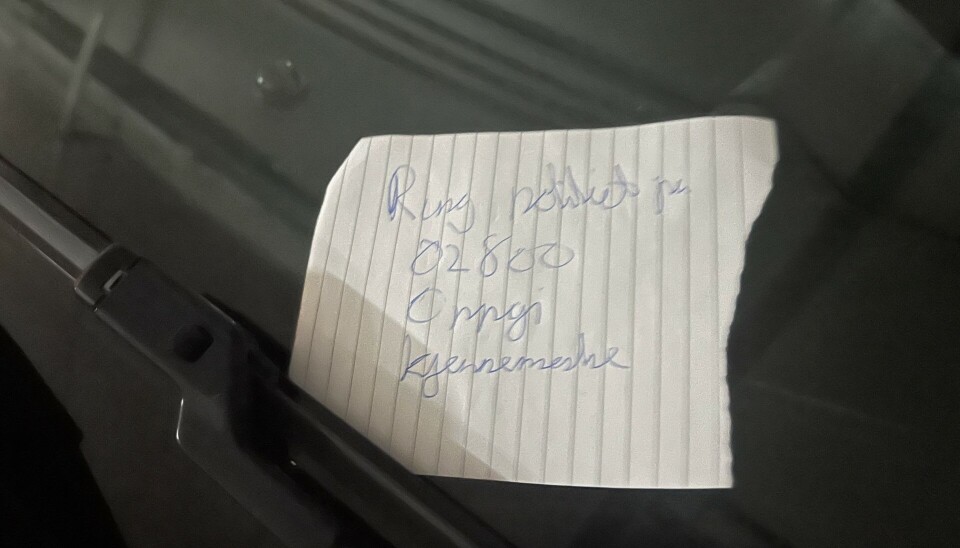 Ring politiet på
02800
Oppgi
kjennemerke